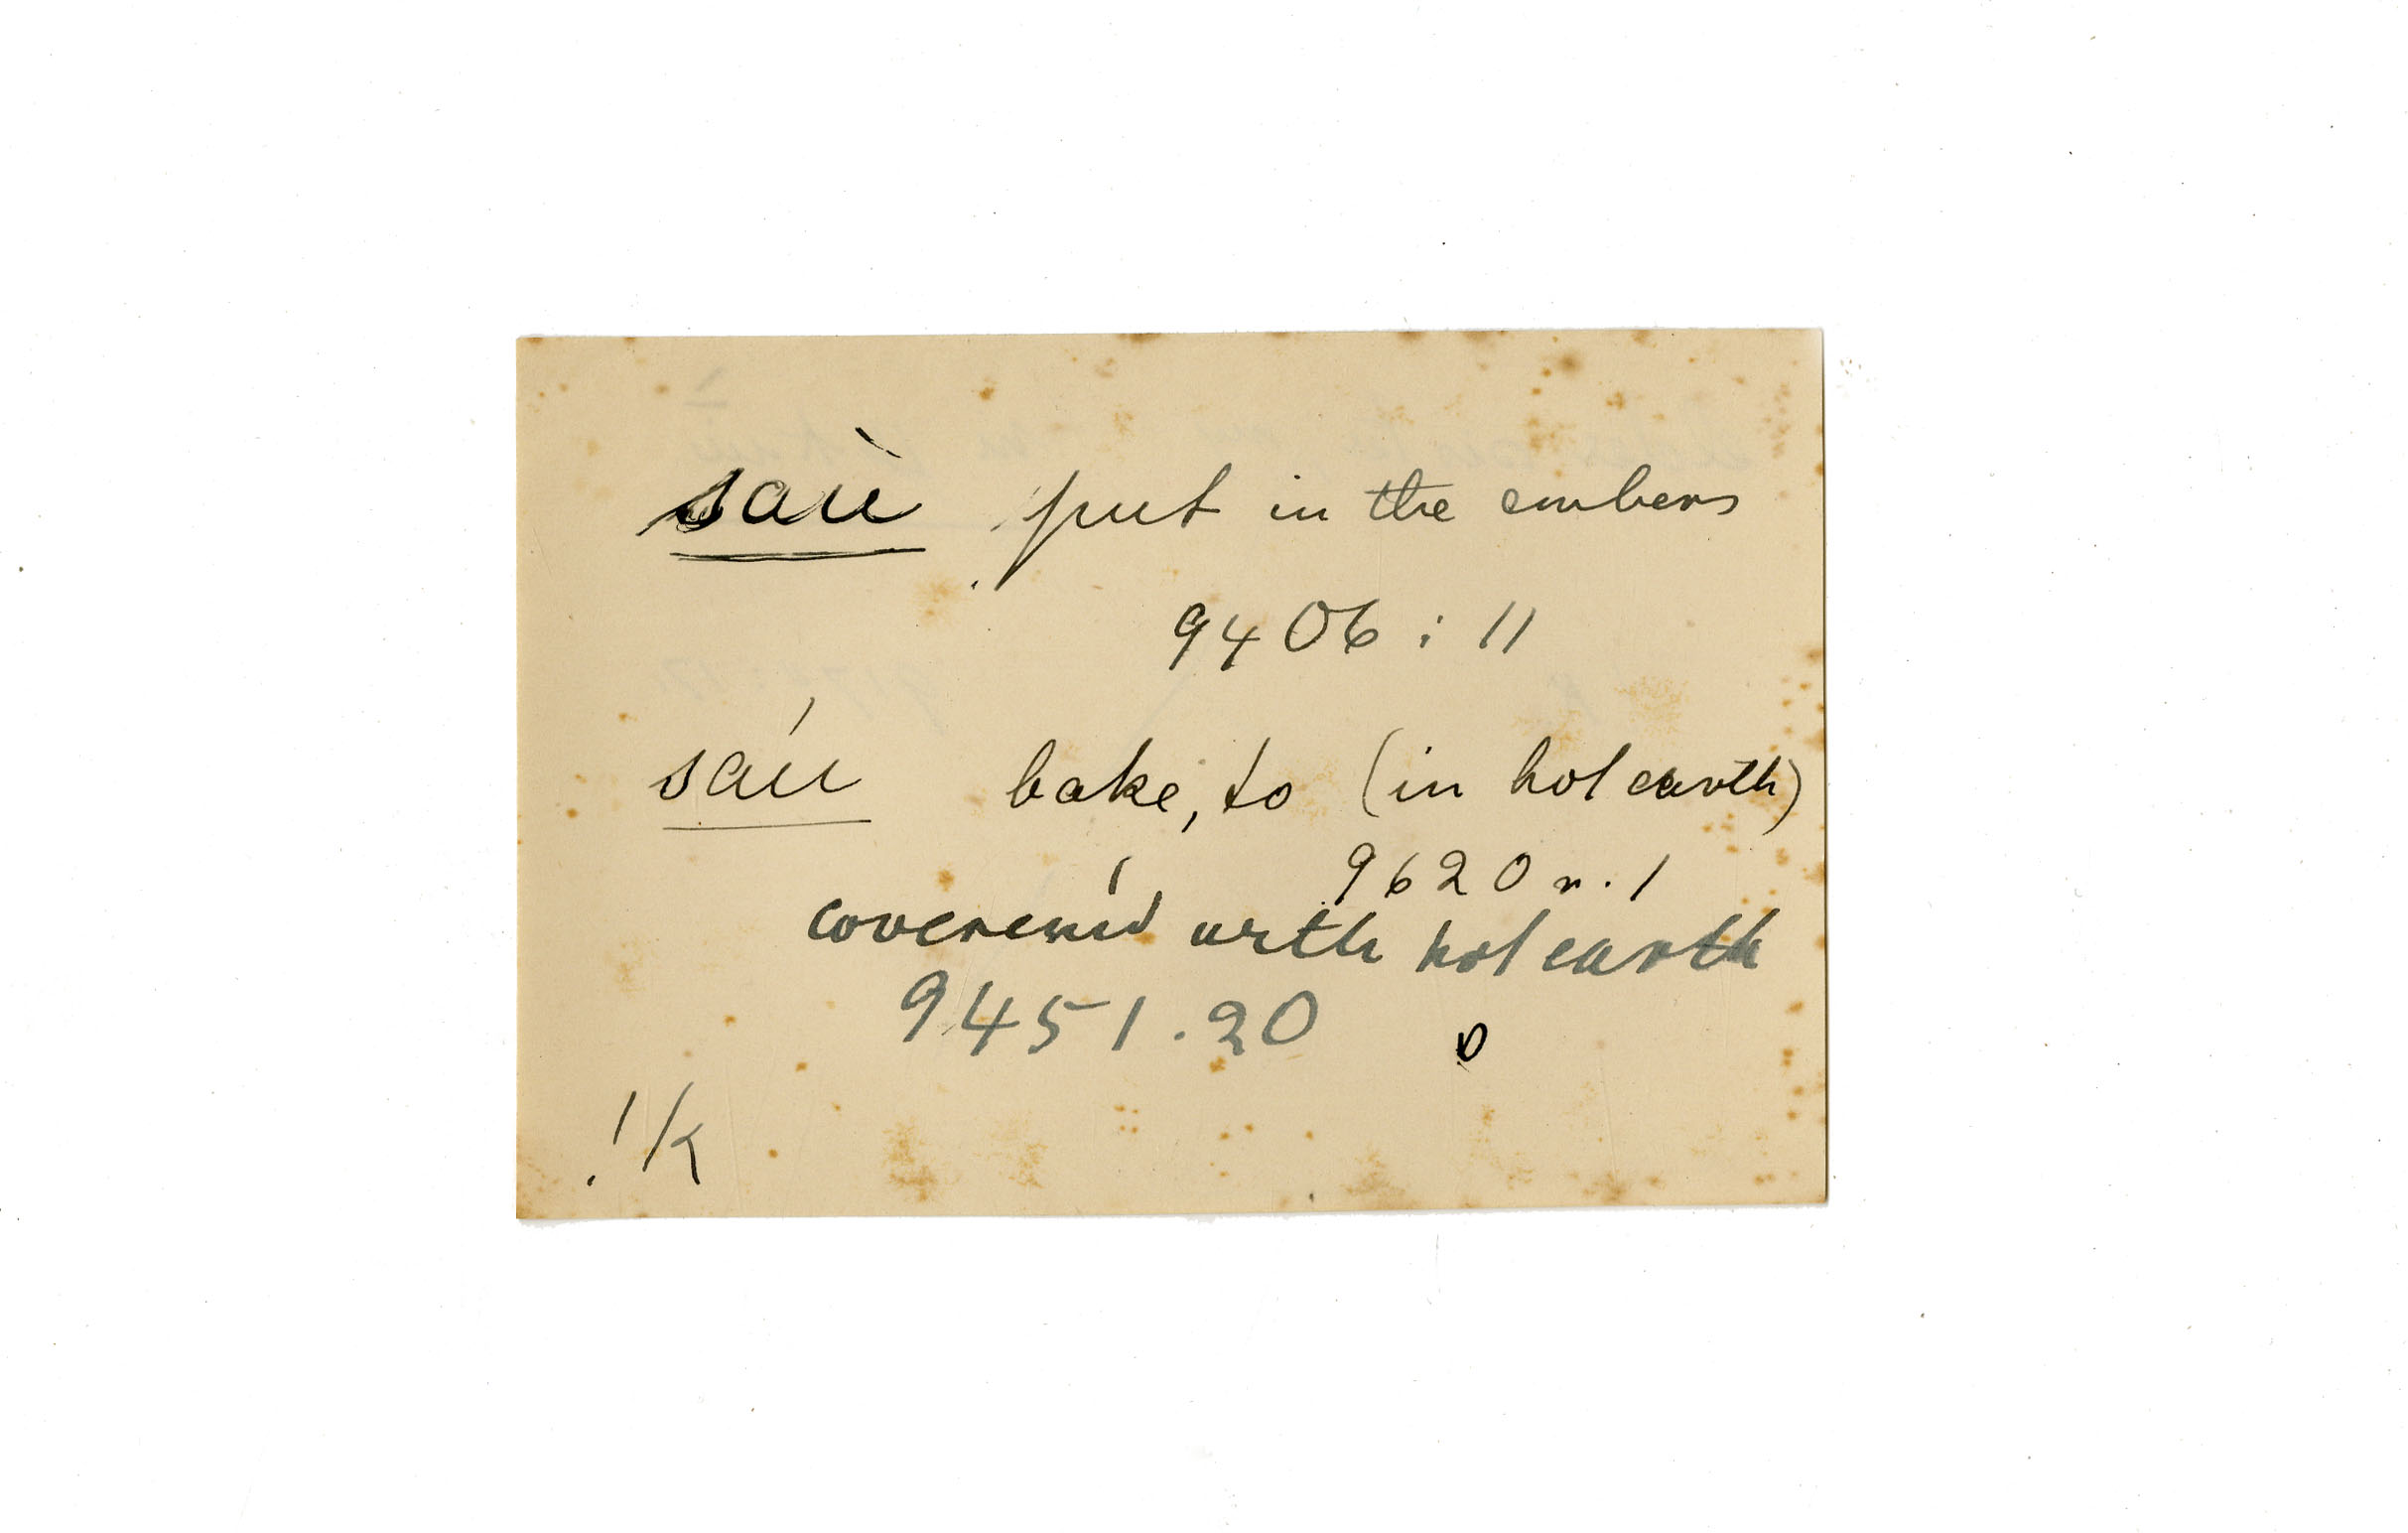 saù put in the embers
9406 : 11
sáu bake, to (in hot earth)
9620 r. 1
cover with hot earth
9451.20
!k